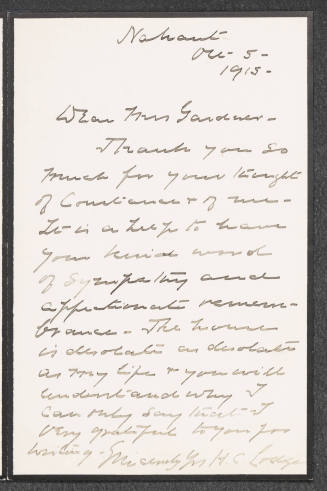 Nahant
Oct - 5 -
1915 -
Dear Mrs Gardner -
Thank you so
much for your thought
of Constance & of me -
It is a help to have
your kind word
of sympathy and
affectionate remem-
brance - The house
is desolate as desolate
as my life & you will
understand why I
can only say that I
very grateful to you for
writing - Sincerely Yrs H. C. Lodge